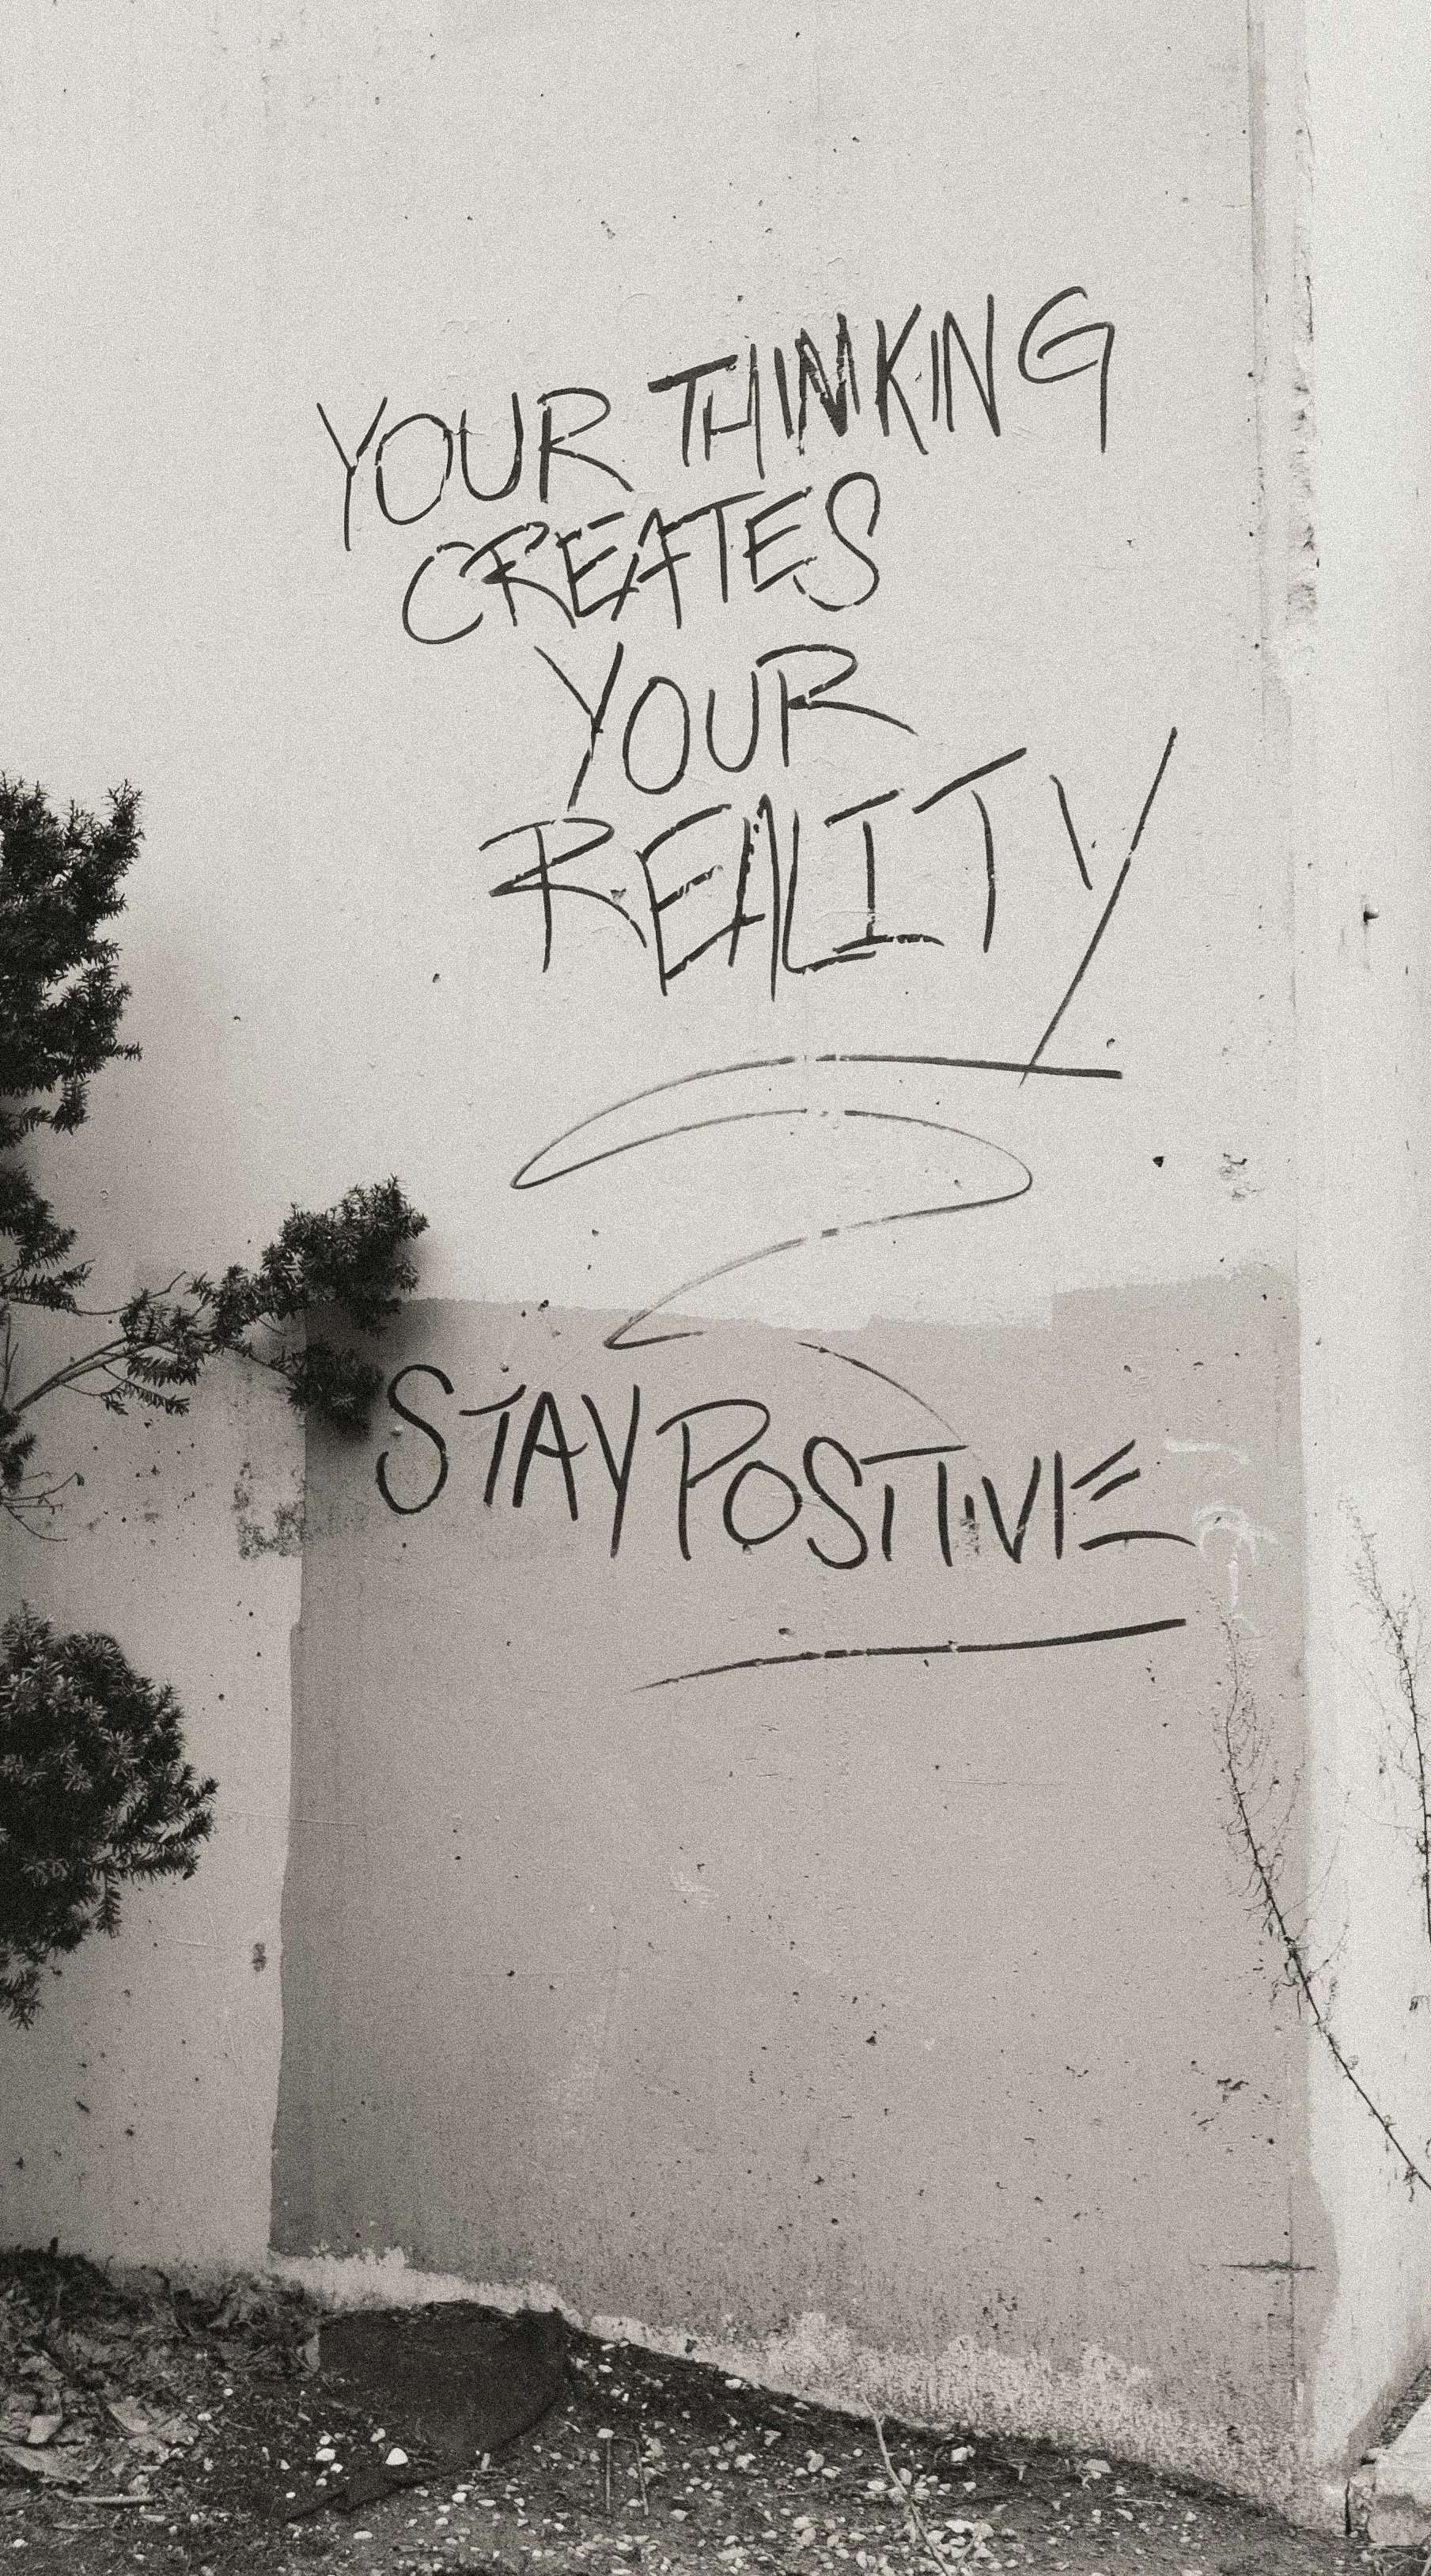 YOUR THINKING
CREATES
YOUR
REALITY
STAY POSITIVE